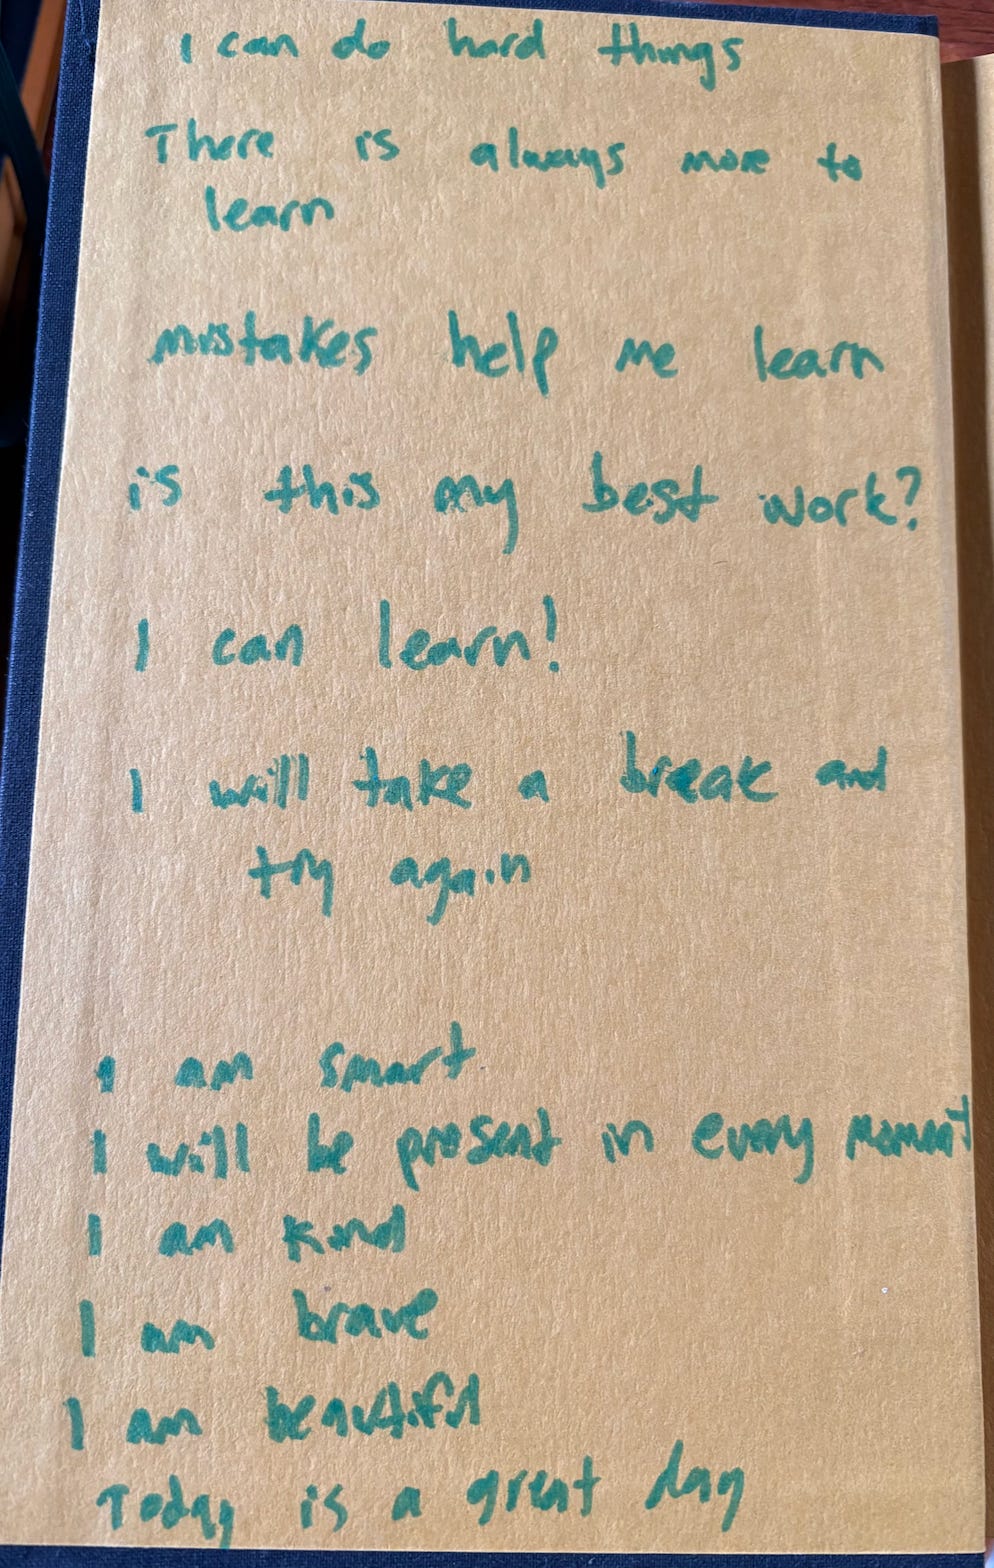 I can do hard things
There is always more to
learn
mistakes help me learn
is this my best work?
I can learn!
I will take a break and
try again
I am smart
I will be present in every moment
I am kind
I am brave
I am beautiful
Today is a great day